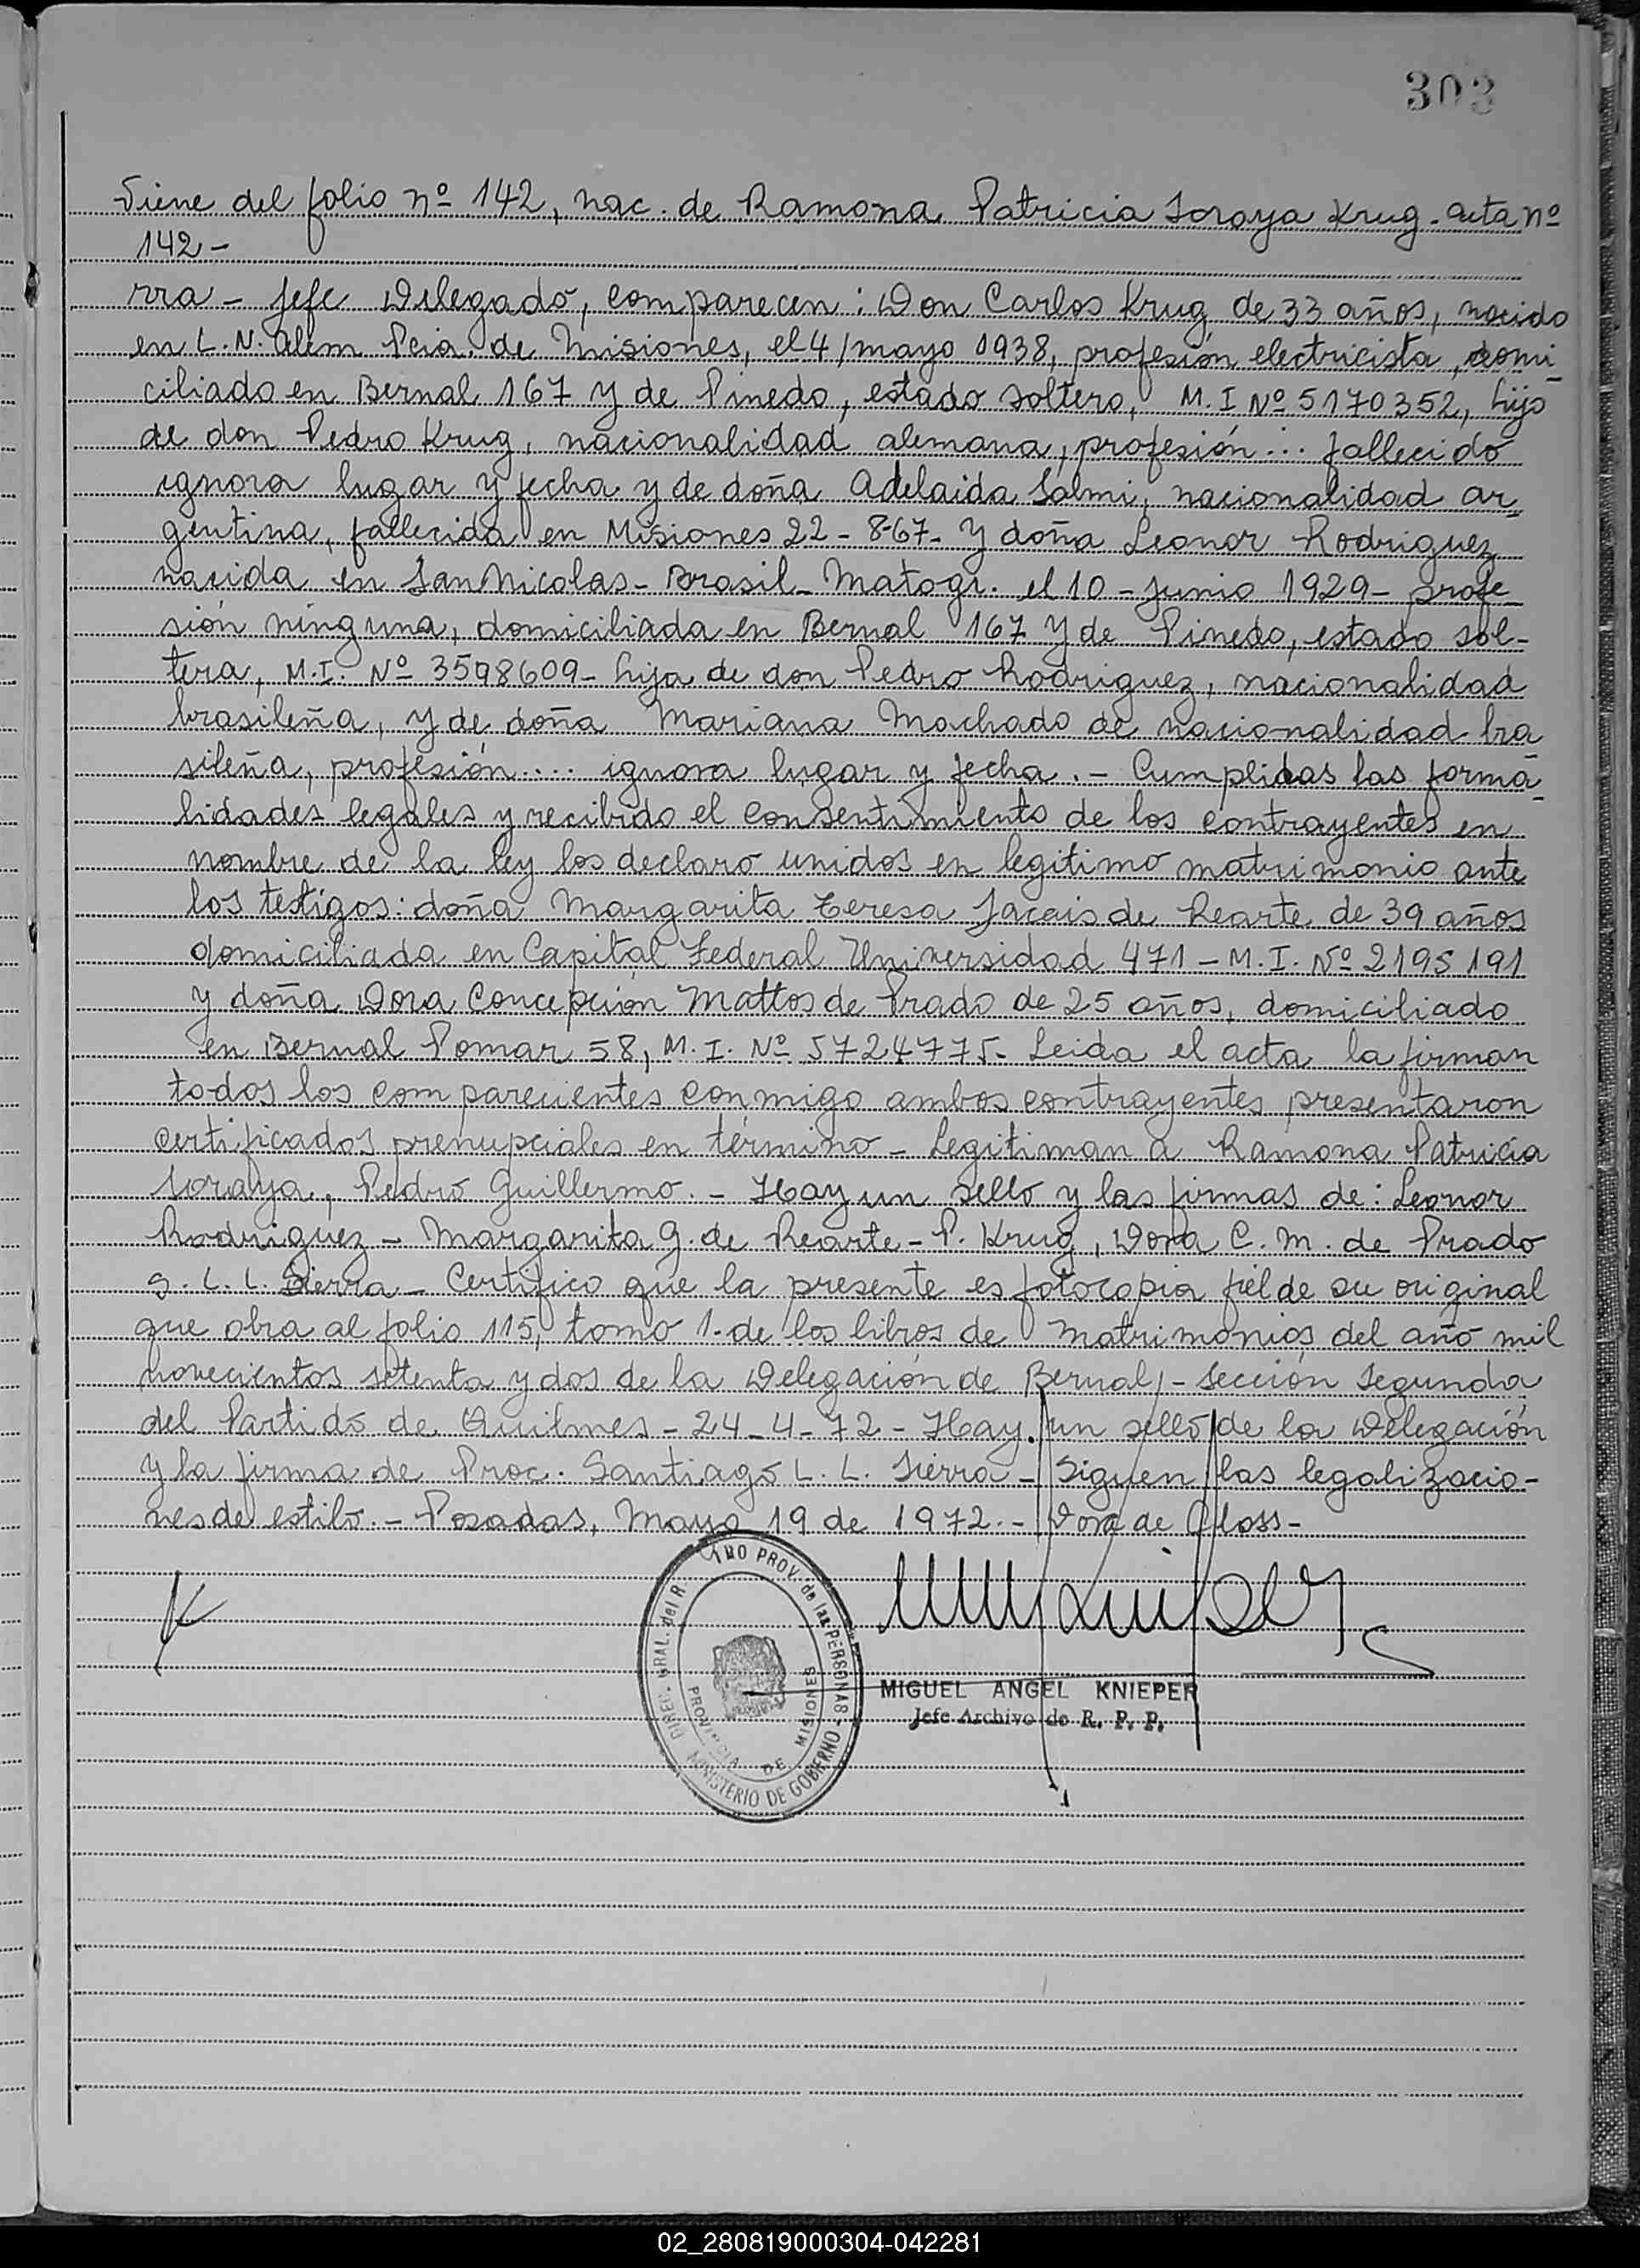 303
Viene del folio nº 142, nac. de Ramona Patricia Soraya Krug - acta nº
142 -
rra - Jefe Delegado, comparecen: Don Carlos Krug de 33 años, nacido
en L. N. Alem Pcia. de Misiones, el 4/mayo 1938, profesión electricista, domi-
ciliado en Bernal 167 y de Pinedo, estado soltero, M. I Nº 5170352, hijo
de don Pedro Krug, nacionalidad alemana, profesión ... fallecido
ignora lugar y fecha y de doña Adelaida Salmi, nacionalidad ar-
gentina, fallecida en Misiones 22 - 8-67- Y doña Leonor Rodriguez
nacida en San Nicolas - Brasil - Matogr. el 10 - Junio 1929 - profe-
sión ninguna, domiciliada en Bernal 167 y de Pinedo, estado sol-
tera, M.I. Nº 3598609 - hija de don Pedro Rodriguez, nacionalidad
brasileña, y de doña Mariana Machado de nacionalidad bra
sileña, profesión .... ignora lugar y fecha. - Cumplidas las forma-
lidades legales y recibido el consentimiento de los contrayentes en
nombre de la ley los declaro unidos en legitimo matrimonio ante
los testigos: doña Margarita Teresa de Rearte de 39 años
domiciliada en Capital Federal Universidad 471 - M. I. Nº 2195191
y doña Dora Concepción Mattos de Prado de 25 años, domiciliado
en Bernal Pomar 58, M. I. Nº 5724775 - Leida el acta la firman
todos los comparecientes conmigo ambos contrayentes presentaron
certificados prenupciales en término - Legitiman a Ramona Patricia
Soraya, Pedro Guillermo. - Hay un sello y las firmas de: Leonor
Rodriguez - Margarita G. de Rearte - P. Krug, Dora C. M. de Prado
S. L. L. Sierra - Certifico que la presente es fotocopia fiel de su original
que obra al folio 115, tomo 1. de los libros de Matrimonios del año mil
novecientos setenta y dos de la Delegación de Bernal, - Sección Segunda
del Partido de Quilmes - 24 - 4 - 72 - Hay un sello de la Delegación
y la firma de Proc. Santiago L. L. Sierra - Siguen las legalizacio-
nes de estilo. - Posadas, Mayo 19 de 1972. - Dora de Gloss -
DIREC. GRAL. del R. PROV. de las PERSONAS
MINISTERIO DE GOBIERNO
PROVINCIA DE MISIONES
MIGUEL ANGEL KNIEPER
Jefe Archivo de R. P. P.
02_280819000304-042281